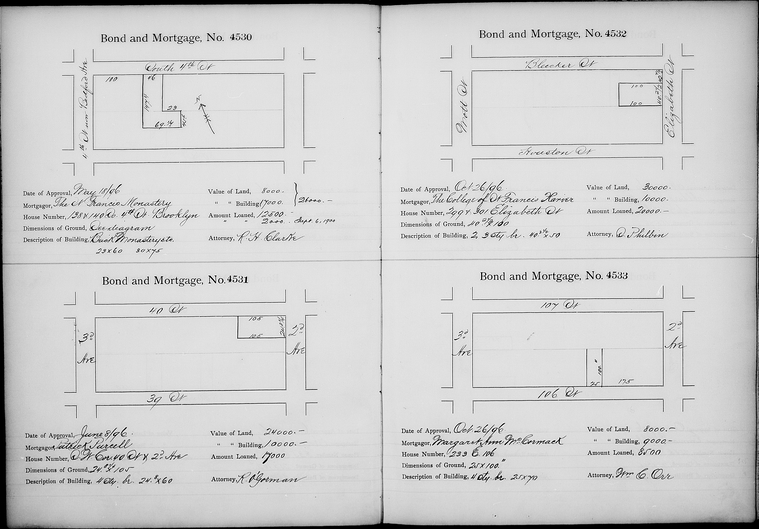 Bond and Mortgage, No. 4530
South 4th St
100
46
23
Date of Approval, May 18/96
Value of Land, 8000.
Mortgagor, The St Francis Monastery
" " Building, 17000
25000.—
House Number, 138 & 140 So 4th St Brooklyn
Amount Loaned, 12500—
" " 2000 Sept. 6, 1900
Dimensions of Ground, See diagram
Description of Building, Brick Monastery etc
Attorney, R. H. Clarke
23x60 30x75
Bond and Mortgage, No. 4531
40 St
3d Ave
105
105
2d Ave
39 St
Date of Approval, June 8/96.
Value of Land, 24000.—
Mortgagor, Patrick Purcell
" " Building, 10000.—
House Number, S W Cor 40 St & 2d Ave
Amount Loaned, 17000
Dimensions of Ground, 24.8½ x 105
Description of Building, 4 sty br 24.8 x 60
Attorney, R. O'Gorman
Bond and Mortgage, No. 4532
Bleecker St
Mott St
100
100
Elizabeth St
Houston St
Date of Approval, Oct 26/96
Value of Land, 30000.
Mortgagor, The College of St Francis Xavier
" " Building, 10000.
House Number, 299 & 301 Elizabeth St
Amount Loaned, 20000—
Dimensions of Ground,
Description of Building, 2, 3 sty br.
Attorney, D. Philbin
Bond and Mortgage, No. 4533
107 St
3d Ave
2d Ave
100."
25
175
106 St
Date of Approval, Oct 26/96
Value of Land, 8000.—
Mortgagor, Margaret Ann McCormack
" " Building, 9000—
House Number, 233 E. 106
Amount Loaned, 8500
Dimensions of Ground, 25 x 100."
Description of Building, 4 sty br 25x70
Attorney, Wm C. Orr